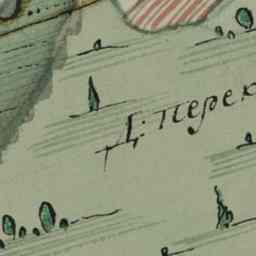 Д: перек